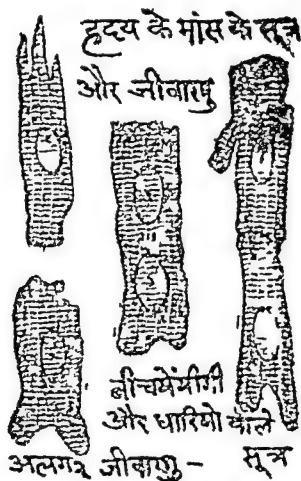 हृदय के मांस के सूत्र
और जीवाणु
बीच में मींगी
और धारियो वाले
सूत्र
अलग२ जीवाणु -